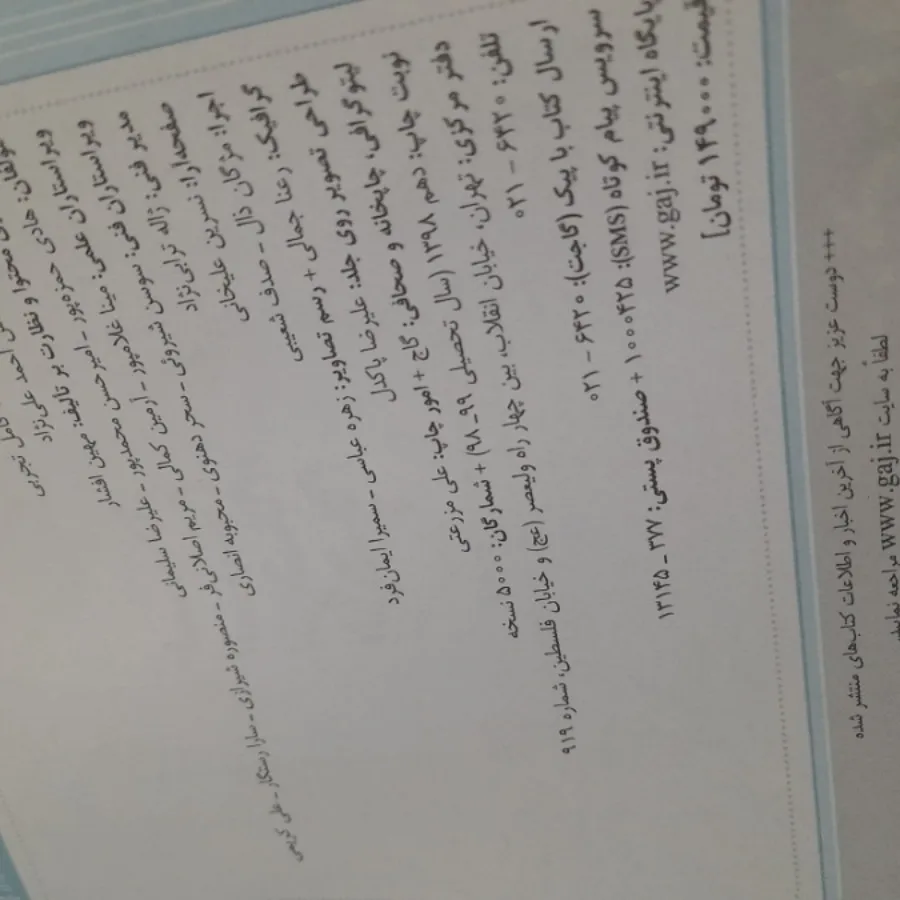 کامل تجربی
مؤلفان: هادی احمد علی‌نژاد
محتوا و نظارت بر تألیف: مهین افشار
ویراستاران: هادی حمزه‌پور - امیرحسن محمدپور - علیرضا سلیمانی
ویراستاران علمی: مینا غلامپور - آرمین کمالی - مریم اصلانی‌فر - منصوره شیرازی - سارا رستگار - علی کریمی
ویراستاران فنی: سوسن شیروئی - سحر دهنوی - محبوبه انصاری
مدیر فنی: ژاله ترابی‌نژاد
صفحه‌آرا: نسرین علیخانی
اجرا: مژگان دال - صدف شعیبی
گرافیک: رعنا جمالی + رسم تصاویر: زهره عباسی - سمیرا ایمان‌فرد
طراحی تصویر روی جلد: علیرضا پاکدل
لیتوگرافی، چاپخانه و صحافی: گاج + امور چاپ: علی مزرعتی
نوبت چاپ: دهم ۱۳۹۸ (سال تحصیلی ۹۹ - ۹۸) + شمارگان: ۵۰۰۰ نسخه
دفتر مرکزی: تهران، خیابان انقلاب، بین چهار راه ولیعصر (عج) و خیابان فلسطین، شماره ۹۱۹
تلفن: ۶۴۲۰ - ۰۲۱
ارسال کتاب با پیک (گاجت): ۶۴۲۰ - ۰۲۱
سرویس پیام کوتاه (SMS): ۱۰۰۰۴۲۵ + صندوق پستی: ۳۷۷ - ۱۳۱۴۵
پایگاه اینترنتی: www.gaj.ir
قیمت: ۱۴۹۰۰۰ تومان]
+++ دوست عزیز جهت آگاهی از آخرین اخبار و اطلاعات کتاب‌های منتشر شده
لطفاً به سایت www.gaj.ir مراجعه نمایید.